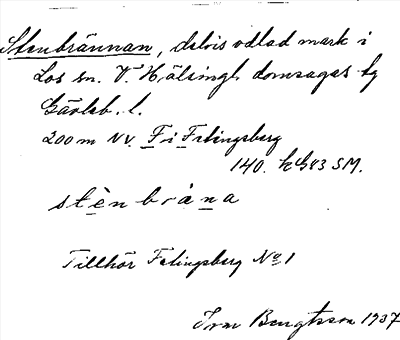 Stenbrännan, delvis odlad mark i
Los sn. V. Hälsingl. domsagas tg
Gävleb. l.
200 m NV. F i Fatingsberg
140. SM.
stènbrȧna
Tillhör Fatingsberg No 1
Bengtsson 1937